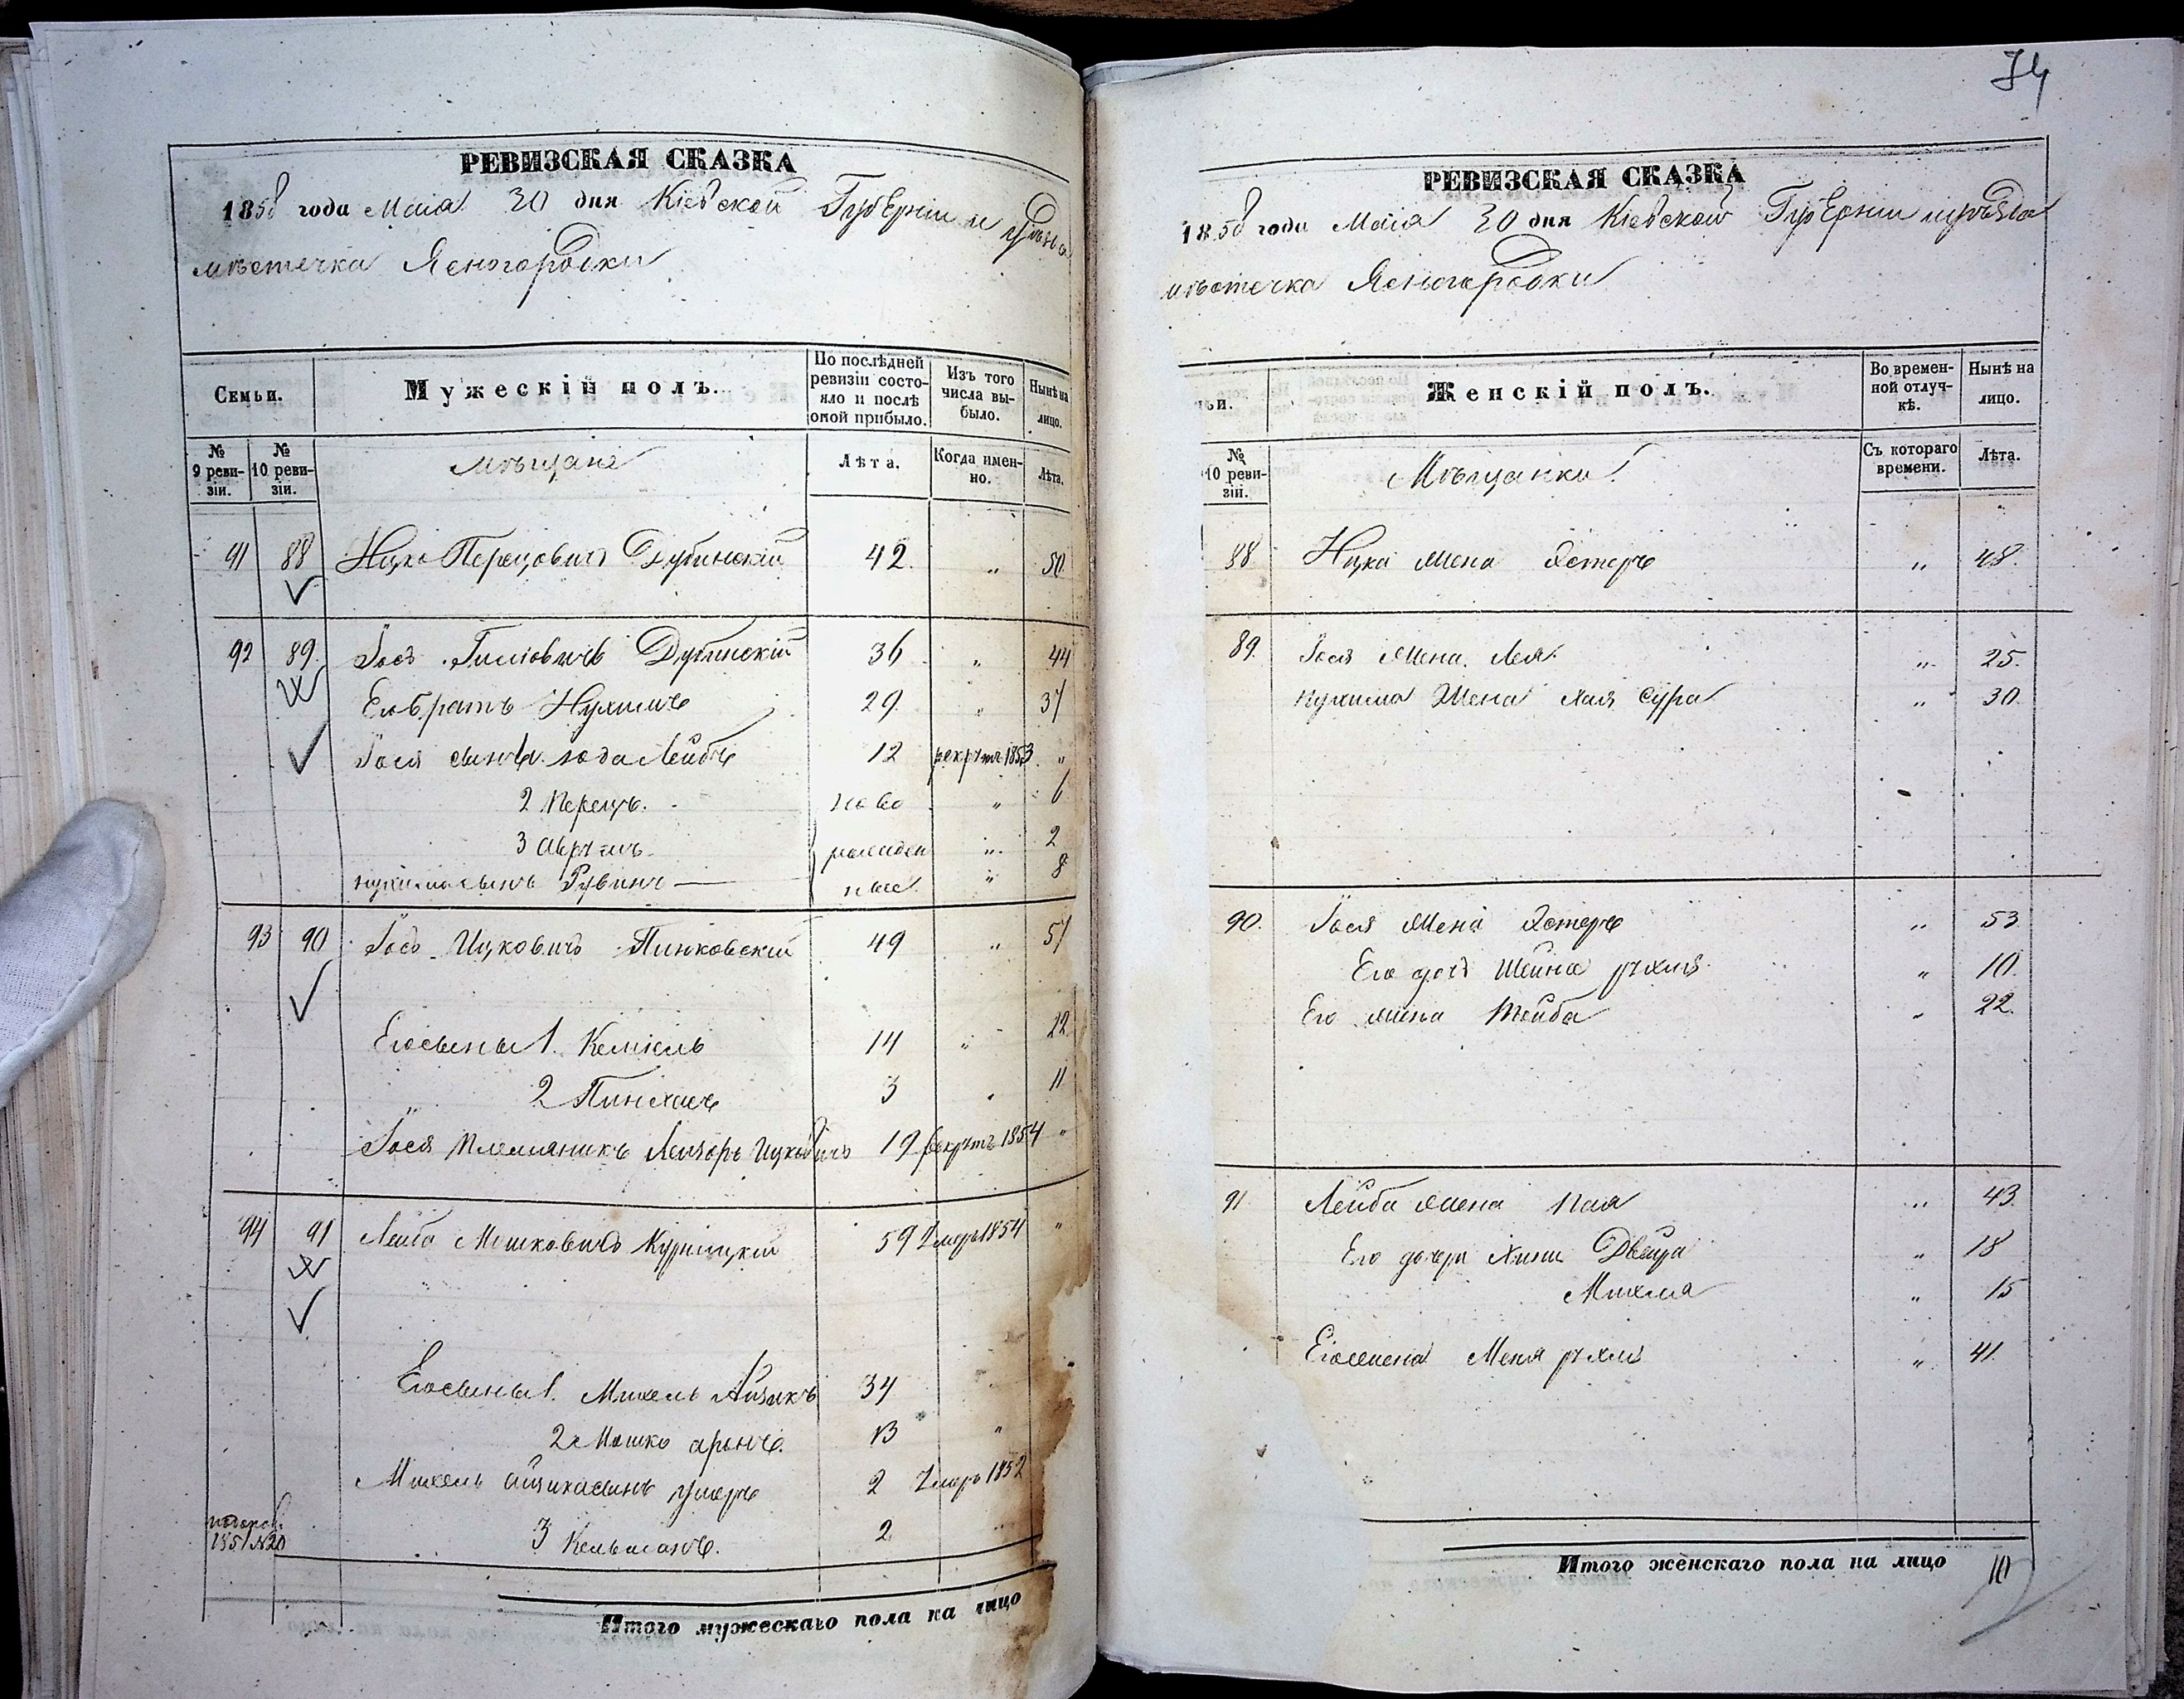 РЕВИЗСКАЯ СКАЗКА
1858 года Маія 30 дня Кіевской Губерніи и уѣзда
мѣстечка Ясногородки
Семьи.
Мужескій полъ.
По послѣдней ревизіи состояло и послѣ оной прибыло.
Изъ того числа выбыло.
Нынѣ на лицо.
№ 9 ревизіи.
№ 10 ревизіи.
мѣщане
Лѣта.
Когда именно.
Лѣта.
91 88 Ицко Перецовичъ Дубинскій 42 " 50
92 89. Іось Дубинскій 36 " 44
Его братъ Нухимъ 29 " 37
Іося сынъ Лейбъ 12 рекрутъ 1853 "
2 Перецъ. ново " 6
3 Аврумъ рожден " 2
Нухима сынъ Рувинъ ные " 8
93 90 Іось Ицковичъ Пинковскій 49 " 57
Его сыны 1. Кельманъ 14 " 22
2 Пинхасъ 3 " 11
Іося племяникъ Лейзоръ Ицковичъ 19 рекрутъ 1854 "
94 91 Лейба Мошковичъ Курницкій 59 умеръ 1854 "
Его сыны 1. Михель Айзикъ 34
2 Мошко аронъ. 13 "
Михель айзика сынъ ушеръ 2 умеръ 1852
1851 №20
3 Кельманъ. 2
Итого мужескаго пола на лицо
74
РЕВИЗСКАЯ СКАЗКА
1858 года Маія 30 дня Кіевской Губерніи и уѣзда
мѣстечка Ясногородки
ьи.
Женскій полъ.
Во временной отлучкѣ.
Нынѣ на лицо.
№ 10 ревизіи.
Мѣщанки
Съ котораго времени.
Лѣта.
88 Ицка жена Эстеръ " 48
89. Іося жена Лея " 25.
Нухима жена Хая Сура " 30.
90. Іося жена Эстеръ " 53
Его дочь Шейна рухля " 10.
Его жена Тойба " 22.
91. Лейба жена " 43.
Его дочери Двейра " 18
Михля " 15
Его жена Меня рухля " 41.
Итого женскаго пола на лицо 10